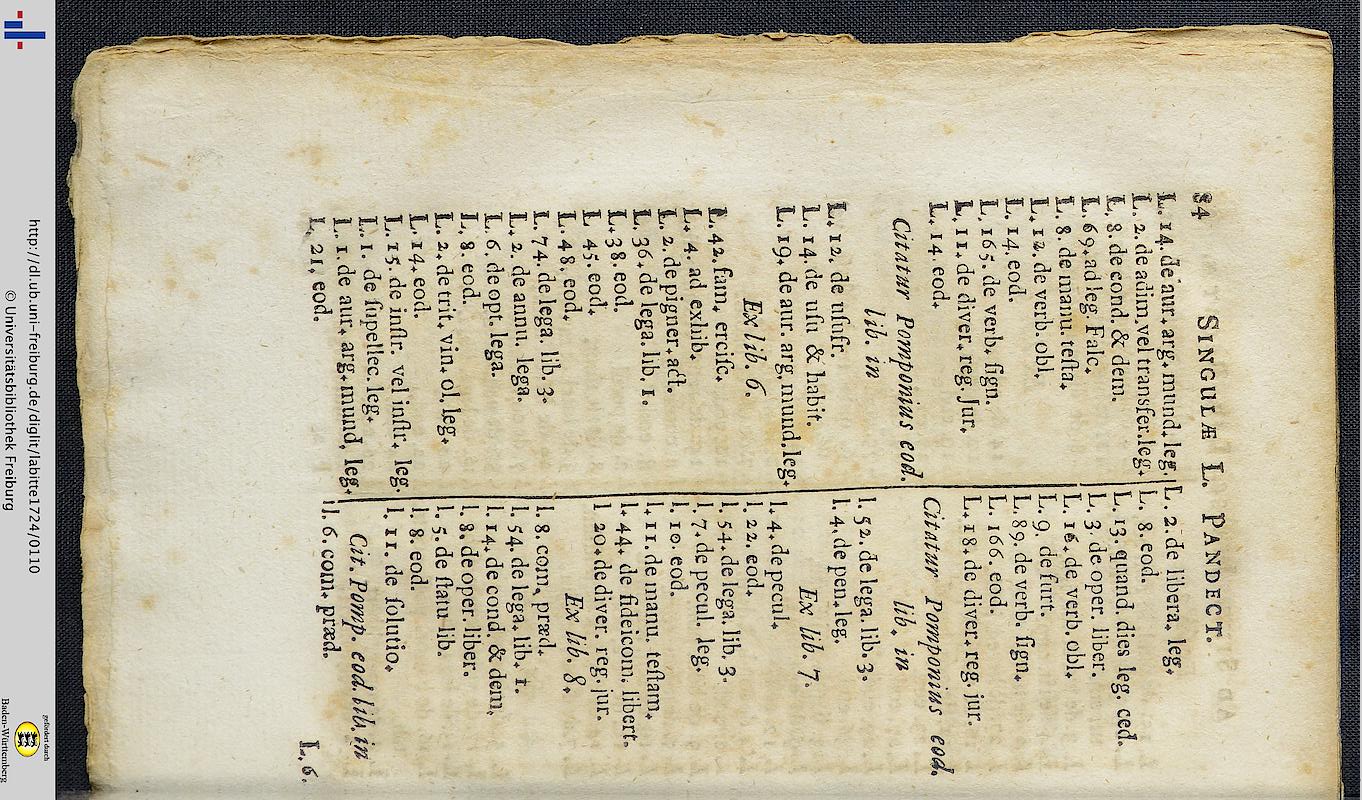 84 SINGULÆ L. PANDECT.
L. 14. de aur. arg. mund. leg.
L. 2. de adim. vel transfer. leg.
L. 8. de cond. & dem.
L. 69. ad leg. Falc.
L. 8. de manu. teſta.
L. 12. de verb. obl.
L. 14. eod.
L. 165. de verb. ſign.
L. 11. de diver. reg. Jur.
L. 14. eod.
Citatur Pomponius eod.
lib. in
L. 12. de uſufr.
L. 14. de uſu & habit.
L. 19. de aur. arg. mund. leg.
Ex lib. 6.
L. 42. fam. erciſc.
L. 4. ad exhib.
L. 2. de pigner. act.
L. 36. de lega. lib. 1.
L. 38. eod.
L. 45. eod.
L. 48. eod.
L. 74. de lega. lib. 3.
L. 2. de annu. lega.
L. 6. de opt. lega.
L. 8. eod.
L. 2. de trit. vin. ol. leg.
L. 14. eod.
L. 15. de inſtr. vel inſtr. leg.
L. 1. de ſupellec. leg.
L. 1. de aur. arg. mund. leg.
L. 21. eod.
L. 2. de libera. leg.
L. 8. eod.
L. 13. quand. dies leg. ced.
L. 3. de oper. liber.
L. 16. de verb. obl.
L. 9. de furt.
L. 89. de verb. ſign.
L. 166. eod.
L. 18. de diver. reg. jur.
Citatur Pomponius eod.
lib. in
l. 52. de lega. lib. 3.
l. 4. de pen. leg.
Ex lib. 7.
l. 4. de pecul.
l. 22. eod.
l. 54. de lega. lib. 3.
l. 7. de pecul. leg.
l. 10. eod.
l. 11. de manu. teſtam.
l. 44. de fideicom. libert.
l. 20. de diver. reg. jur.
Ex lib. 8.
l. 8. com. præd.
l. 54. de lega. lib. 1.
l. 14. de cond. & dem.
l. 8. de oper. liber.
l. 5. de ſtatu lib.
l. 8. eod.
l. 11. de ſolutio.
Cit. Pomp. eod. lib. in
l. 6. com. præd.
L. 6.
http://dl.ub.uni-freiburg.de/diglit/labitte1724/0110
© Universitätsbibliothek Freiburg
gefördert durch
Baden-Württemberg